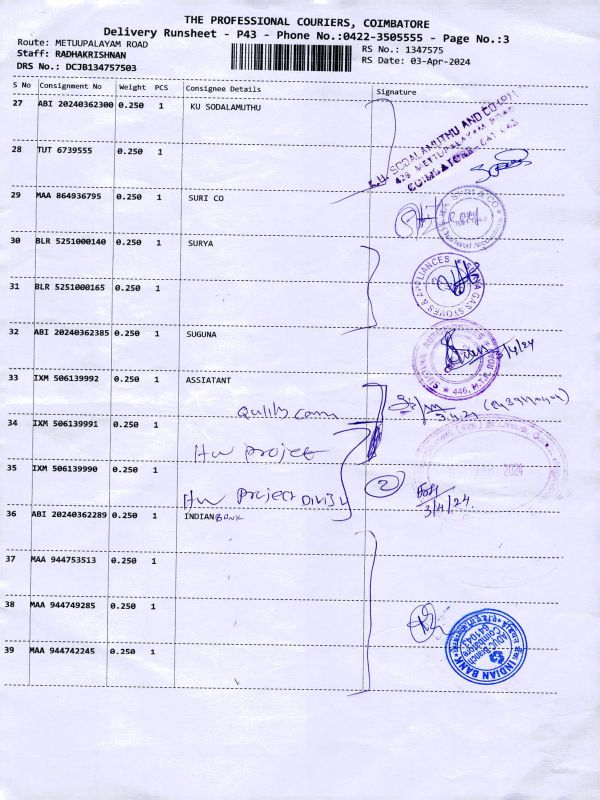 THE PROFESSIONAL COURIERS, COIMBATORE
Delivery Runsheet - P43 - Phone No.:0422-3505555 - Page No.:3
Route: METUUPALAYAM ROAD
RS No.: 1347575
Staff: RADHAKRISHNAN
RS Date: 03-Apr-2024
DRS No.: DCJB134757503
S No Consignment No Weight PCS Consignee Details Signature
27 ABI 20240362300 0.250 1 KU SODALAMUTHU
K.U. SODALAMUTHU AND CO (P)
METTUPALAYAM ROAD
28 TUT 6739555 0.250 1
29 MAA 864936795 0.250 1 SURI CO
SURI & CO
30 BLR 5251000140 0.250 1 SURYA
31 BLR 5251000165 0.250 1
SURYA GAS STOVES & APPLIANCES
32 ABI 20240362385 0.250 1 SUGUNA
3/4/24
446, M.T.P. ROAD
33 IXM 506139992 0.250 1 ASSIATANT
34 IXM 506139991 0.250 1
HW project
35 IXM 506139990 0.250 1
2
2024
HW project
3/4/24
36 ABI 20240362289 0.250 1 INDIAN BANK
37 MAA 944753513 0.250 1
38 MAA 944749285 0.250 1
39 MAA 944742245 0.250 1
INDIAN BANK
Branch
Coimbatore
641043